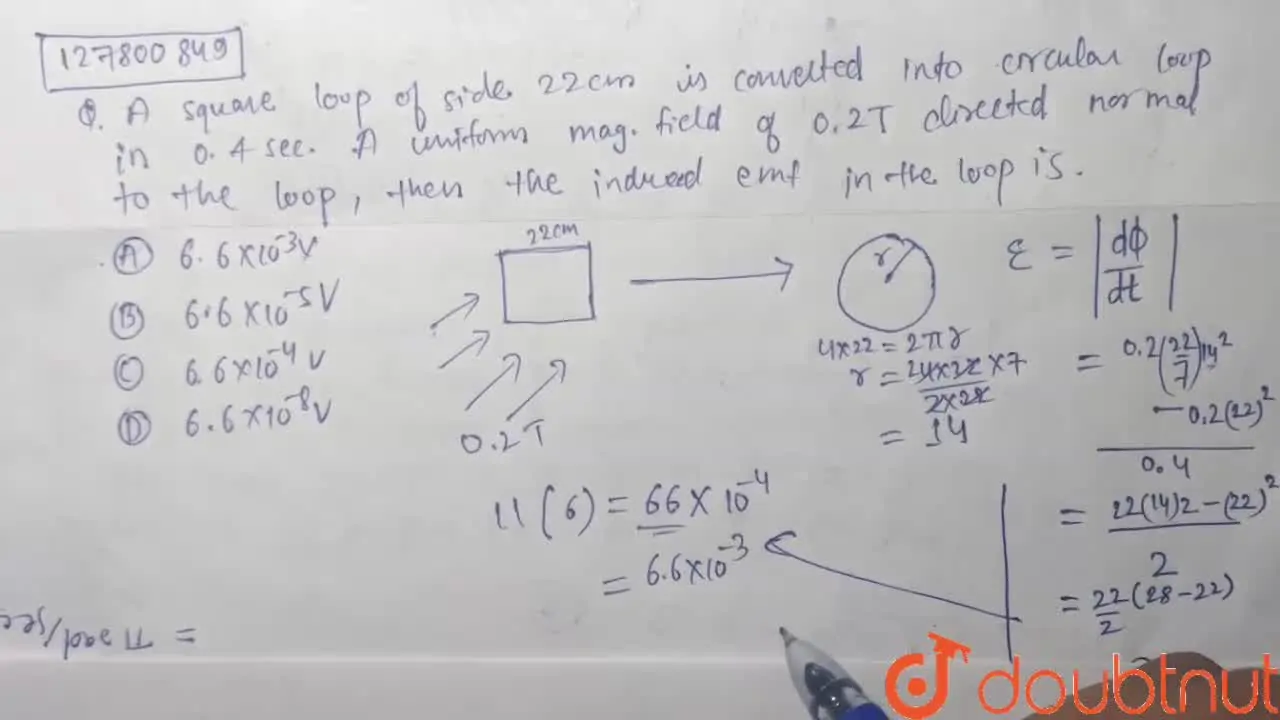 127800849
Q. A square loop of side 22cm is converted into circular loop
in 0.4 sec. A uniform mag. field of 0.2T directed normal
to the loop, then the induced emf in the loop is.
(A) 6.6×10⁻³V
(B) 6.6×10⁻⁵V
(C) 6.6×10⁻⁴V
(D) 6.6×10⁻⁸V
22cm
0.2T
r
4×22 = 2πr
r = 24×22×7
2×22
= 14
ε = |dΦ/dt|
= 0.2(22/7)14²
- 0.2(22)²
0.4
= 22(14)2-(22)²
2
= 22/2 (28-22)
11(6) = 66×10⁻⁴
= 6.6×10⁻³
= π rad/sec
doubtnut